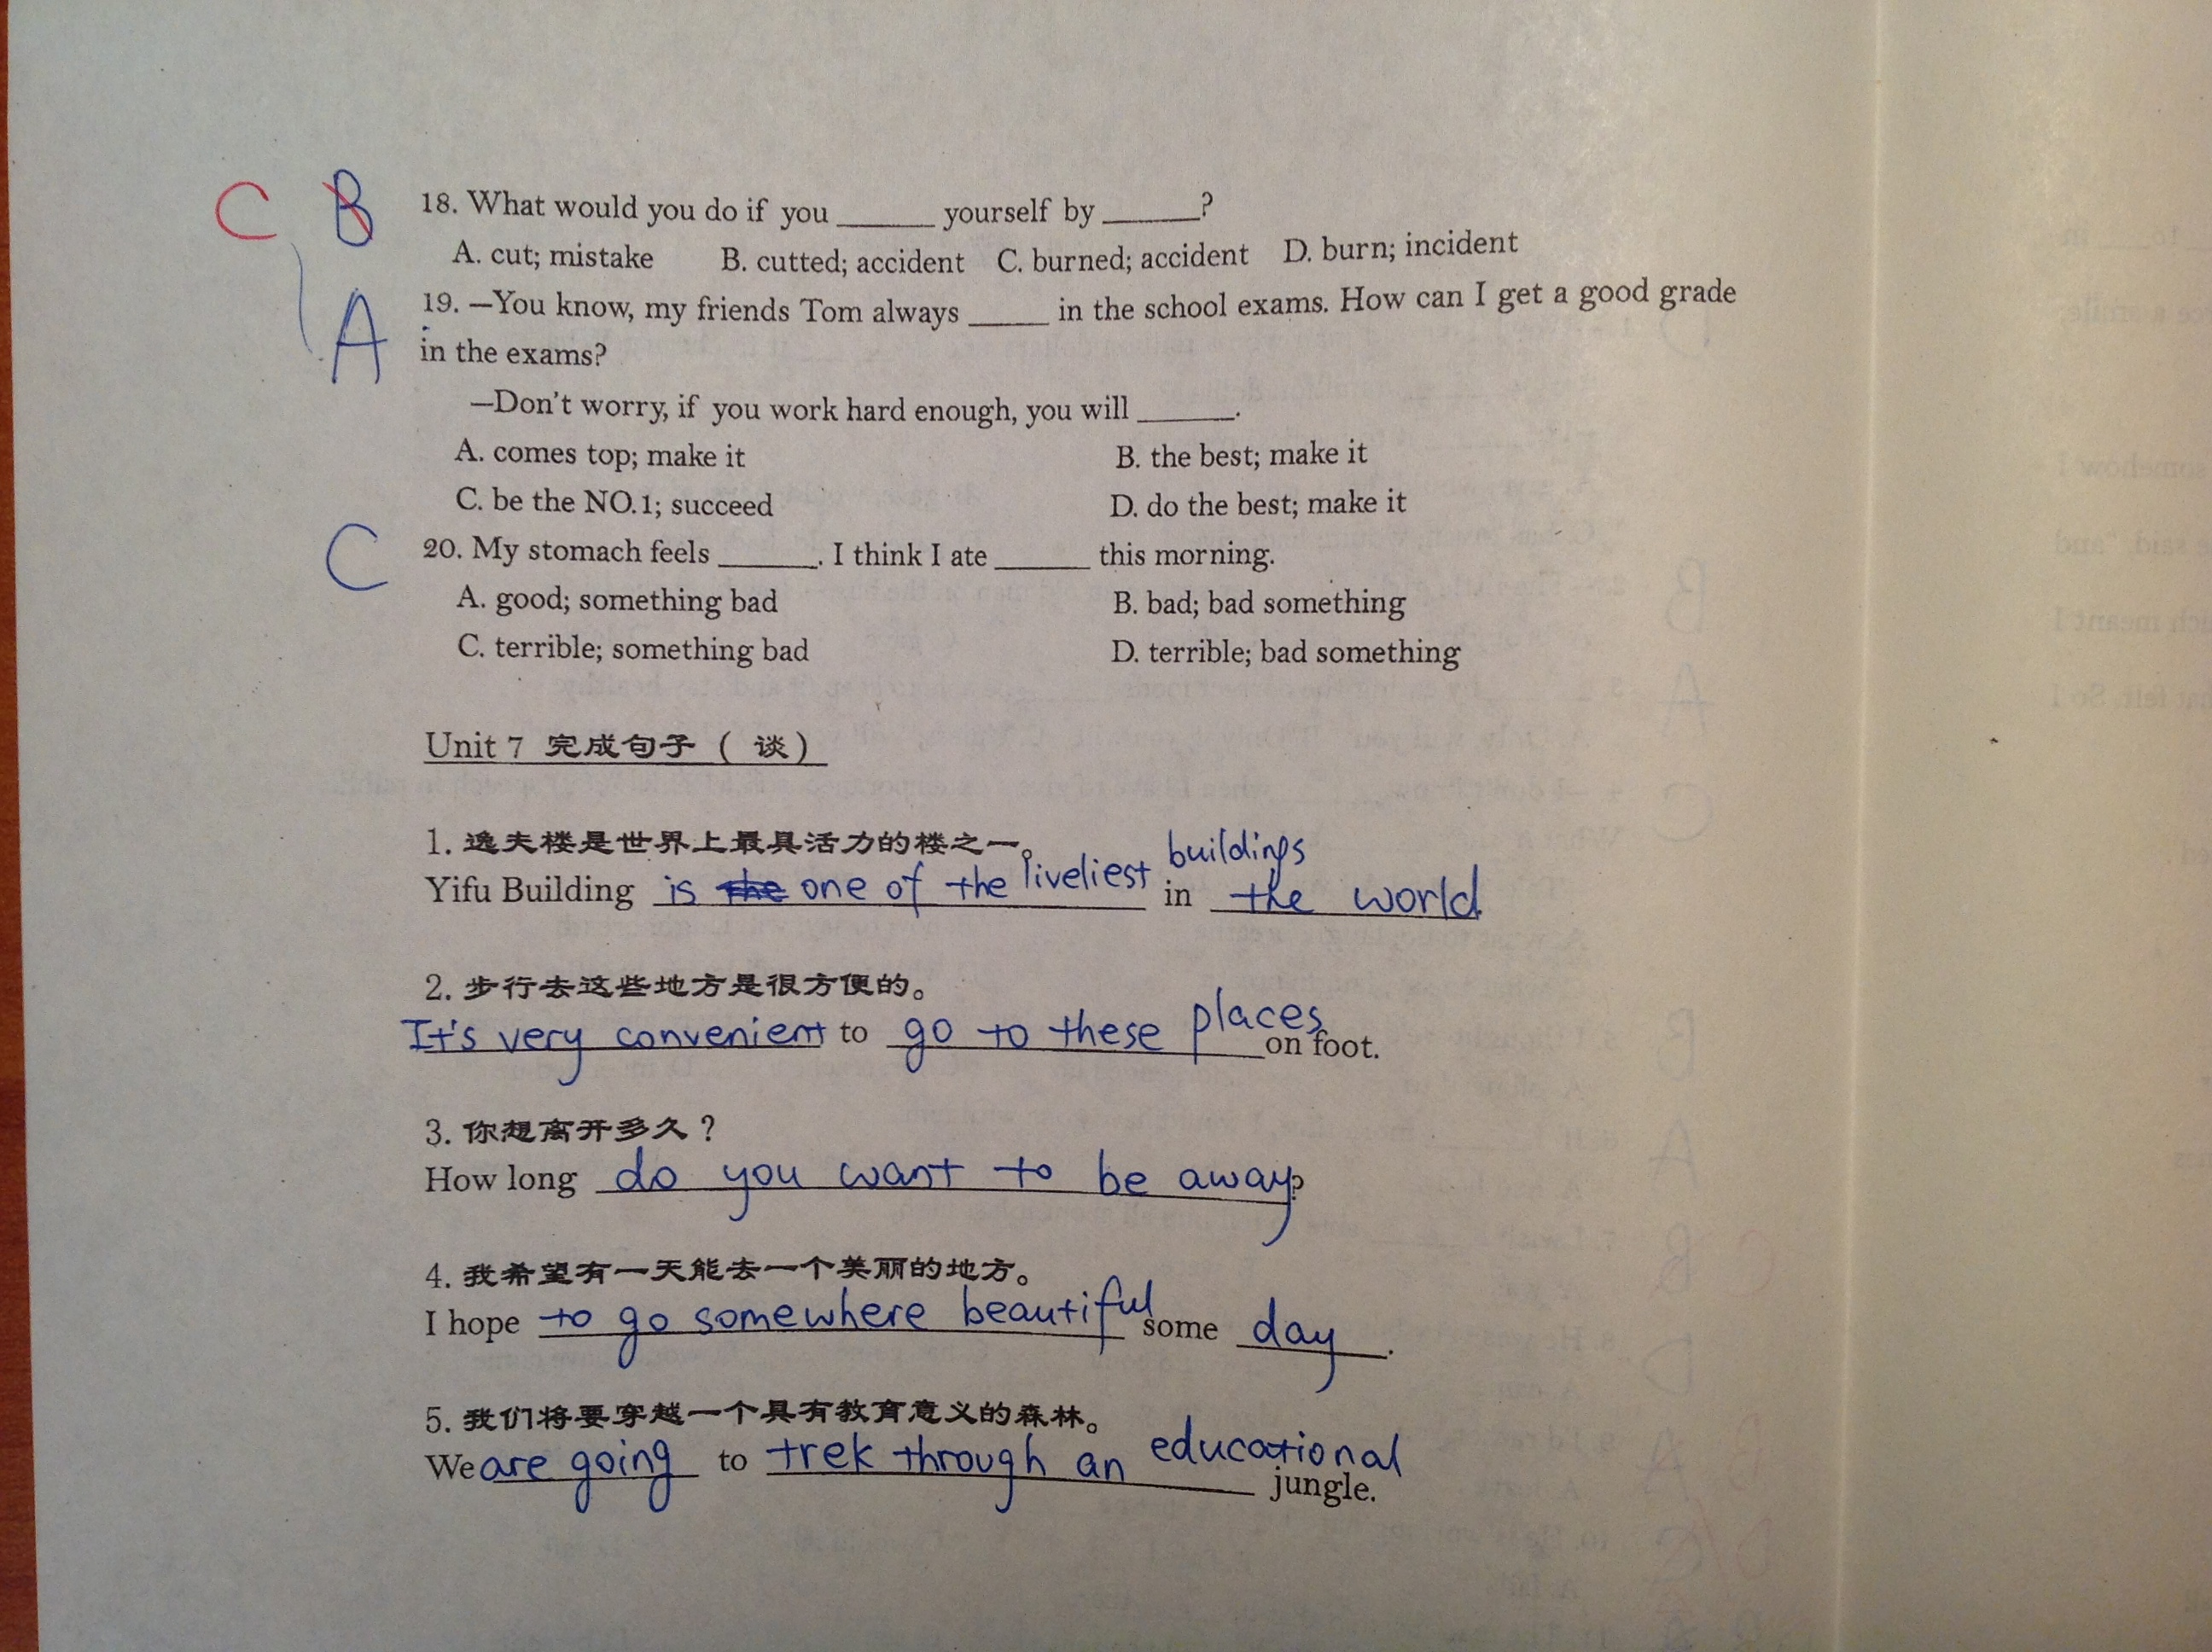 C B 18. What would you do if you ______ yourself by ______?
A. cut; mistake B. cutted; accident C. burned; accident D. burn; incident
A 19. —You know, my friends Tom always _____ in the school exams. How can I get a good grade
in the exams?
—Don't worry, if you work hard enough, you will ______.
A. comes top; make it B. the best; make it
C. be the NO.1; succeed D. do the best; make it
C 20. My stomach feels ______. I think I ate ______ this morning.
A. good; something bad B. bad; bad something
C. terrible; something bad D. terrible; bad something
Unit 7 完成句子（ 谈）
1. 逸夫楼是世界上最具活力的楼之一。
Yifu Building is the one of the liveliest buildings in the world
2. 步行去这些地方是很方便的。
It's very convenient to go to these places on foot.
3. 你想离开多久？
How long do you want to be away?
4. 我希望有一天能去一个美丽的地方。
I hope to go somewhere beautiful some day.
5. 我们将要穿越一个具有教育意义的森林。
We are going to trek through an educational jungle.